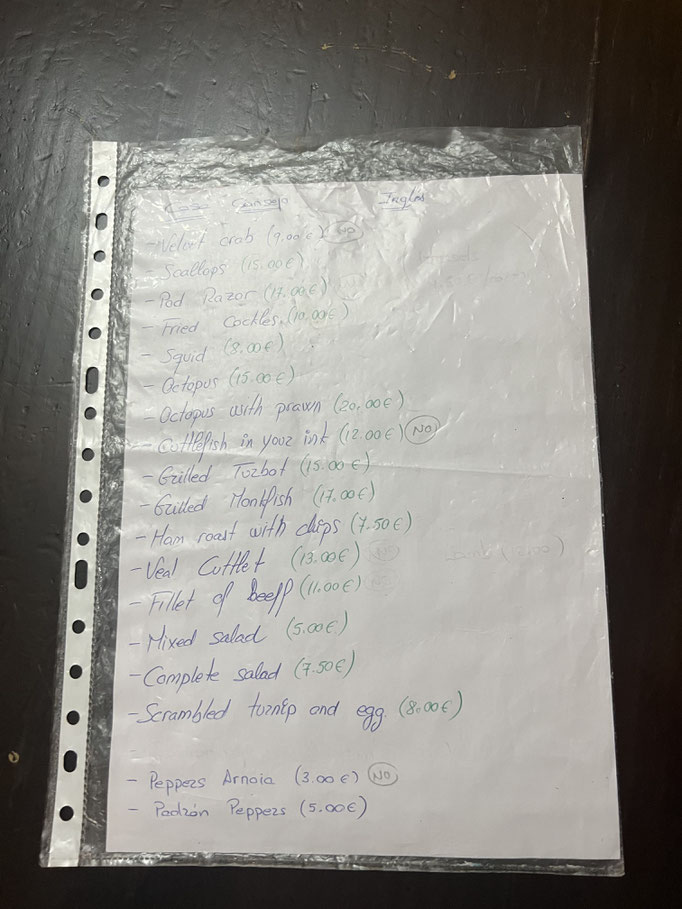 Conseja Inglés
- Velvet crab (9.00€) NO
- Scallops (15.00€)
- Pod Razor (17.00€)
- Fried Cockles (10.00€)
- Squid (8.00€)
- Octopus (15.00€)
- Octopus with prawn (20.00€)
- Cuttlefish in your ink (12.00€) NO
- Grilled Turbot (15.00€)
- Grilled Monkfish (17.00€)
- Ham roast with chips (7.50€)
- Veal Cuttlet (13.00€) NO
- Fillet of beeff (11.00€) NO
- Mixed salad (5.00€)
- Complete salad (7.50€)
- Scrambled turnip and egg. (8.00€)
- Peppers Arnoia (3.00€) NO
- Padrón Peppers (5.00€)